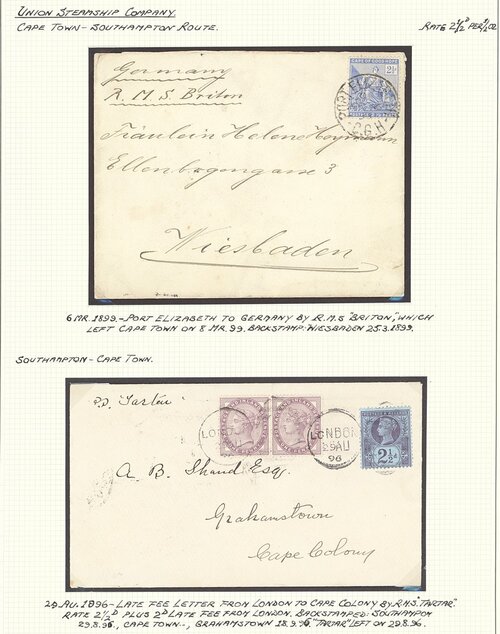 UNION STEAMSHIP COMPANY.
CAPE TOWN - SOUTHAMPTON ROUTE.
RATE 2½D PER ½OZ
Germany
R. M. S. Briton
CAPE OF GOOD HOPE
2½
PORT ELIZABETH
C.G.H.
Fräulein Helene Heymann
Ellenbogengasse 3
Wiesbaden
6 MR. 1899. - PORT ELIZABETH TO GERMANY BY R.M.S "BRITON", WHICH
LEFT CAPE TOWN ON 8 MR. 99. BACKSTAMP: WIESBADEN 25.3.1899.
SOUTHAMPTON - CAPE TOWN.
"Tartar"
LOND
LONDON
AU
96
2½D
A. B. Shand Esq.
Grahamstown
Cape Colony
AU. 1896 - LATE FEE LETTER FROM LONDON TO CAPE COLONY BY R.M.S. "TARTAR"
RATE 2½D PLUS 2D LATE FEE FROM LONDON. BACKSTAMPED: SOUTHAMPTON
29.8.96, CAPE TOWN -, GRAHAMSTOWN 18.9.96 "TARTAR" LEFT ON 29.8.96.